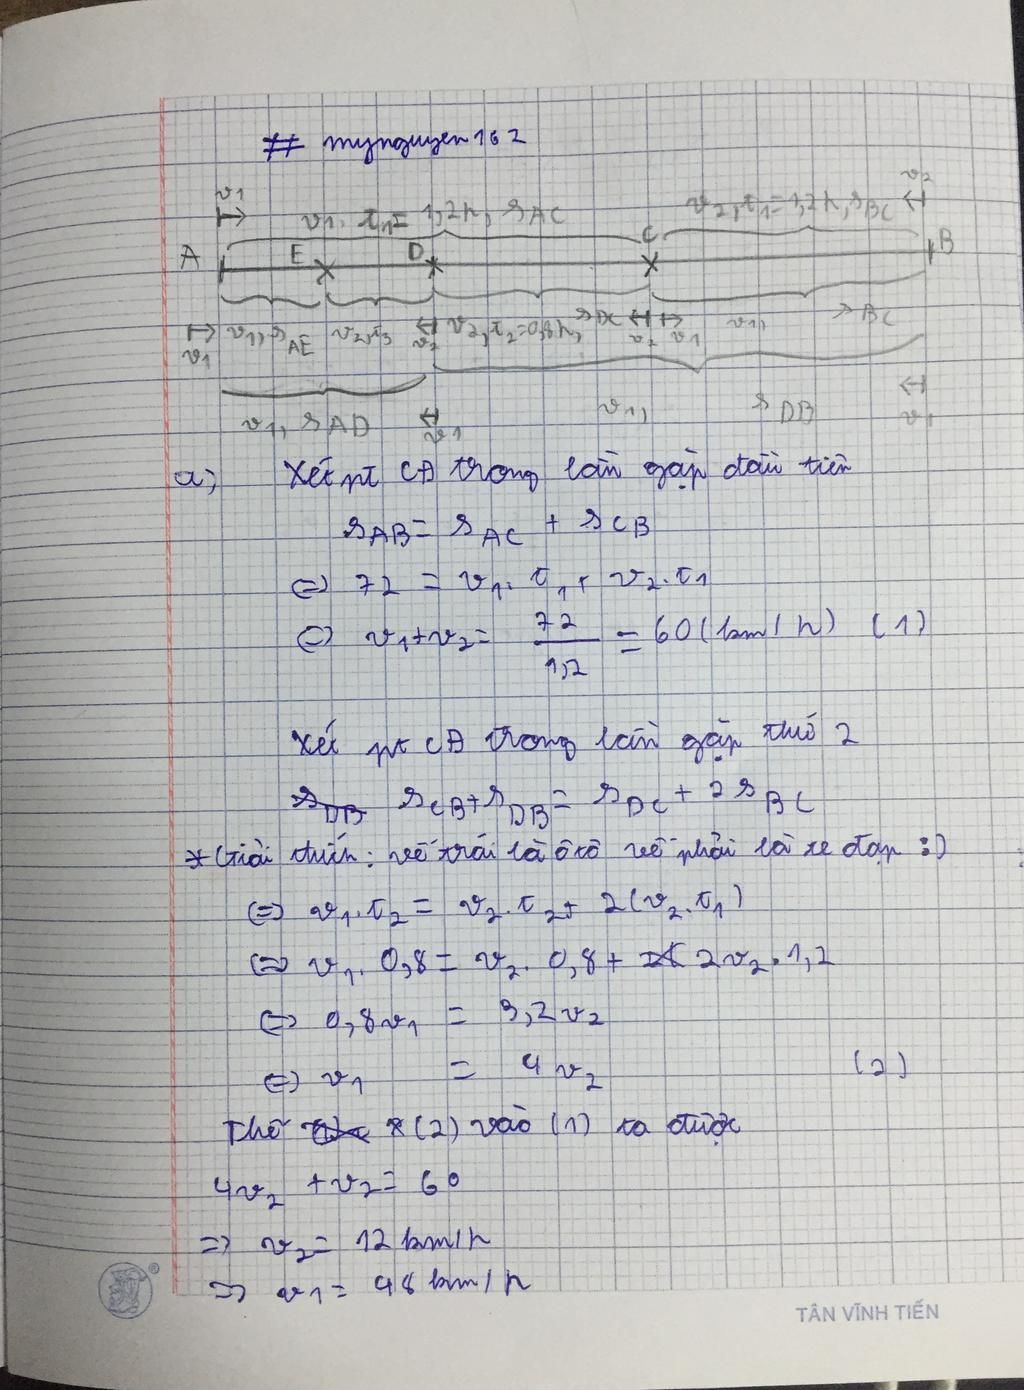 # mynguyen162
v1 v1, t1= 1,2h, sAC v2, t1=1,2h, sBC v2
A E D C B
v1 v1, sAE v2, t3 v2 v2, t2=0,8h, sDC v2 v1 v1, sBC
v1, sAD v1 v1, sDB v1
a) Xét pt CĐ trong lần gặp đầu tiên
sAB = sAC + sCB
⇔ 72 = v1. t1 + v2. t1
⇔ v1+v2 = 72/1,2 = 60 (km/h) (1)
Xét pt CĐ trong lần gặp thứ 2
sDB sCB + sDB = sDC + 2 sBC
* (Giải thích: vế trái là ôtô vế phải là xe đạp :)
⇔ v1. t2 = v2. t2 + 2(v2. t1)
⇔ v1. 0,8 = v2. 0,8 + 2v2. 1,2
⇔ 0,8v1 = 3,2v2
⇔ v1 = 4v2 (2)
Thế (2) vào (1) ta được
4v2 + v2 = 60
⇒ v2 = 12 km/h
⇒ v1 = 48 km/h
TÂN VĨNH TIẾN